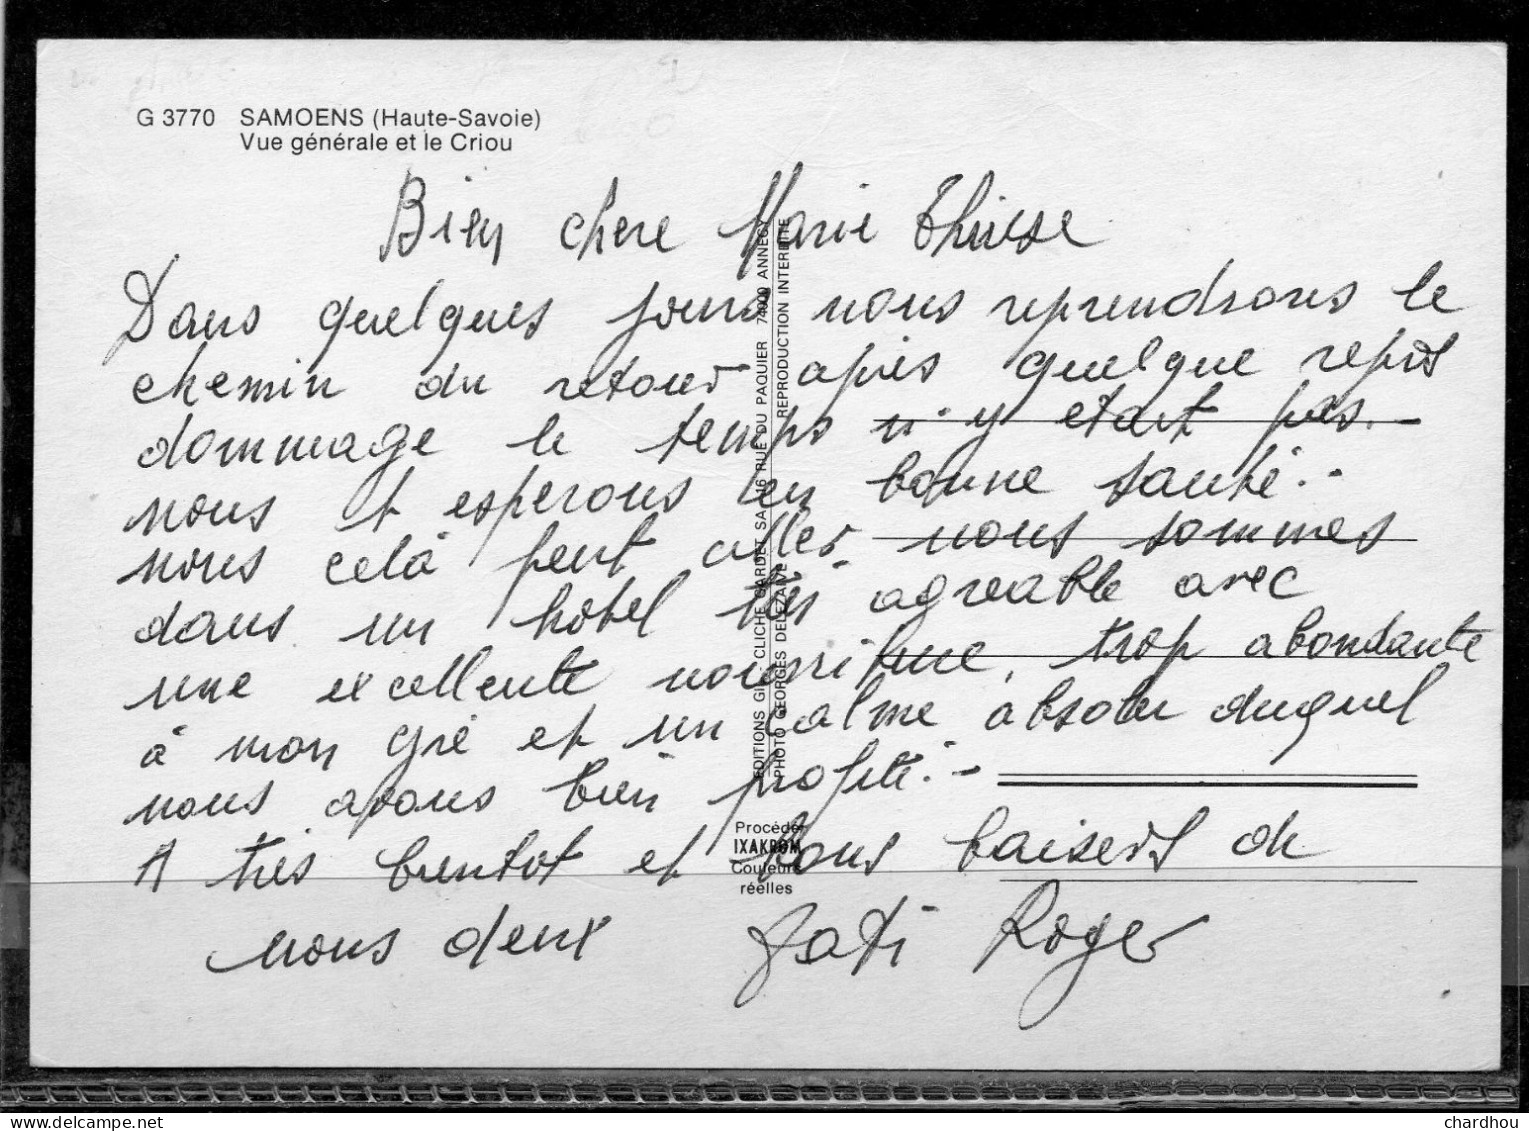 G 3770 SAMOENS (Haute-Savoie)
Vue générale et le Criou
Bien chere Marie Thérèse
Dans quelques jours nous reprendrons le
chemin du retour après quelque repos
dommage le temps n'y etait pas.-
nous et esperons en bonne santé.-
nous celà peut aller nous sommes
dans un hôtel très agreable avec
une excellente nourriture, trop abondante
à mon gré et un calme absolu duquel
nous avons bien profité.-
A très bientot et bons baisers de
nous deux Roger
EDITIONS GIL - CLICHE GARDET SA - 16 RUE DU PAQUIER 74000 ANNECY
PHOTO GEORGES DELEZAIVE REPRODUCTION INTERDITE
Procédé
IXAKROM
Couleurs
réelles
chardhou